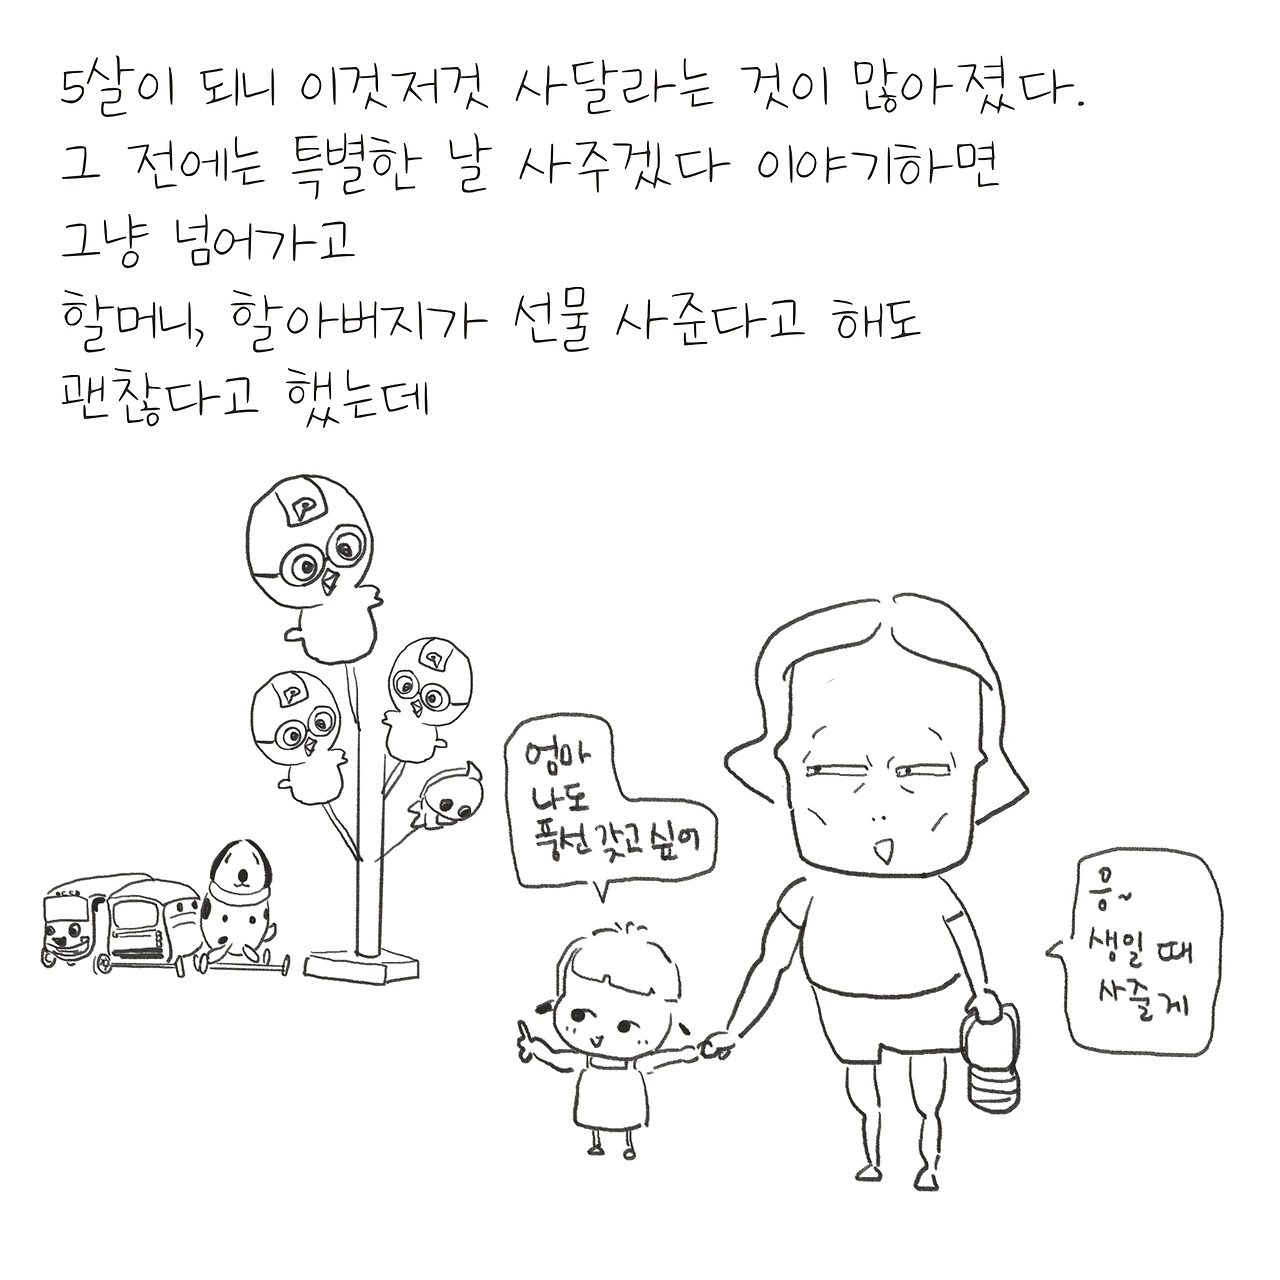 5살이 되니 이것저것 사달라는 것이 많아졌다.
그 전에는 특별한 날 사주겠다 이야기하면
그냥 넘어가고
할머니, 할아버지가 선물 사준다고 해도
괜찮다고 했는데
P
P
P
엄마
나도
풍선 갖고 싶어
응~
생일 때
사줄게